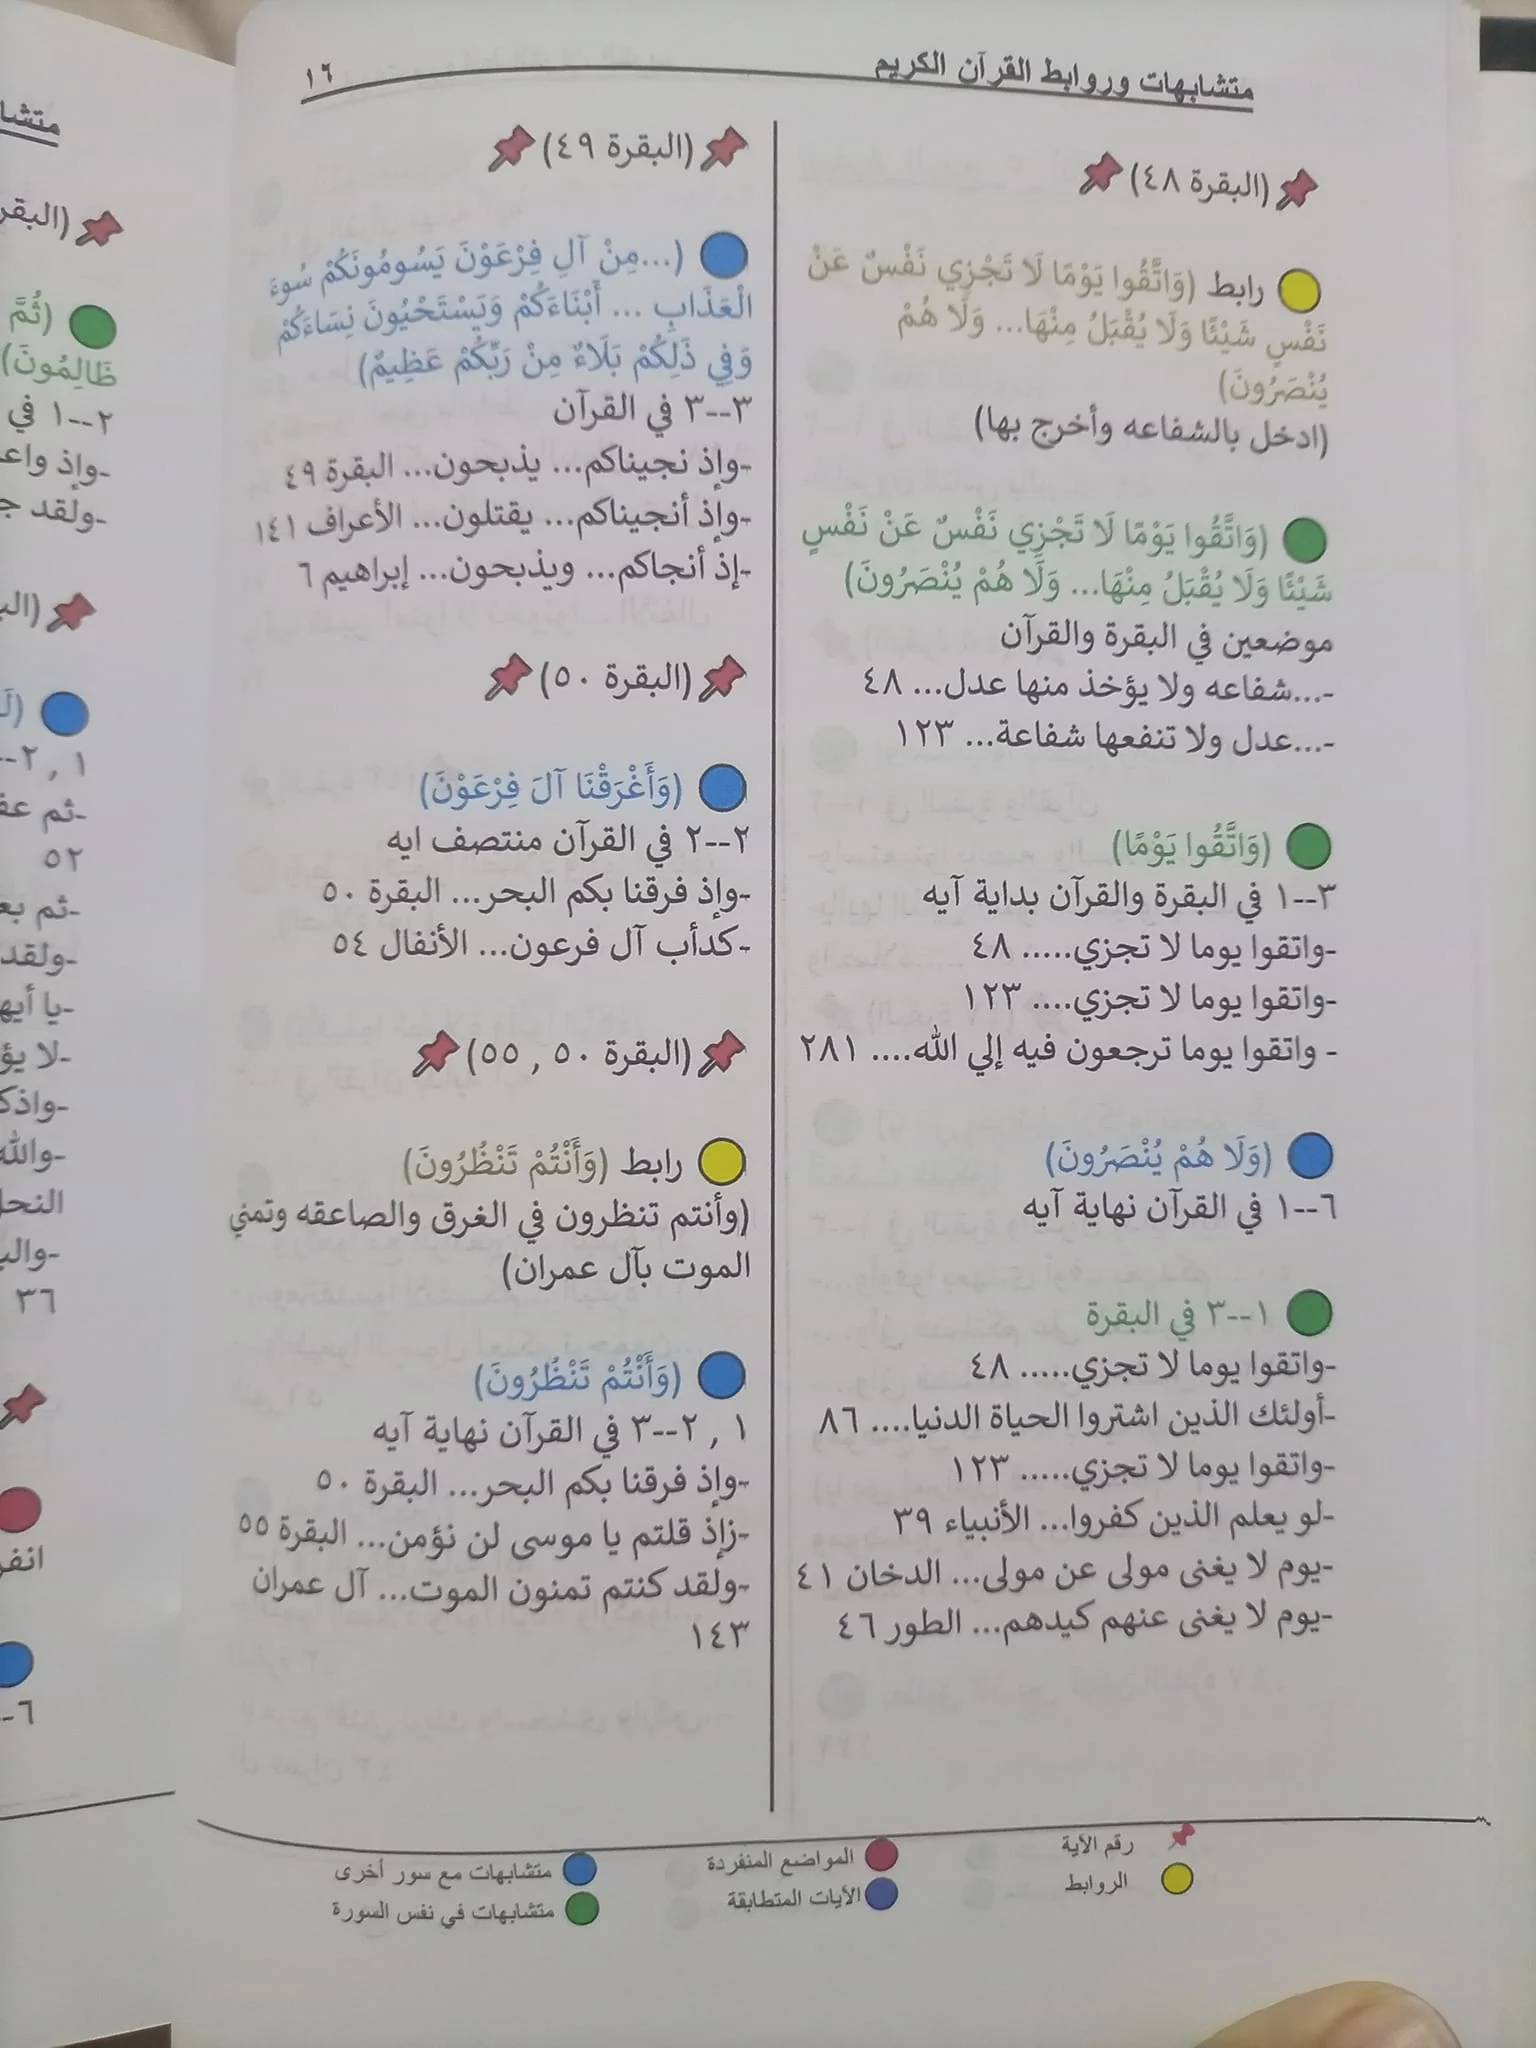 متشابهات وروابط القرآن الكريم
١٦
(البقرة ٤٨)
رابط (وَاتَّقُوا يَوْمًا لَا تَجْزِي نَفْسٌ عَنْ
نَفْسٍ شَيْئًا وَلَا يُقْبَلُ مِنْهَا... وَلَا هُمْ
يُنْصَرُونَ)
(ادخل بالشفاعه وأخرج بها)
(وَاتَّقُوا يَوْمًا لَا تَجْزِي نَفْسٌ عَنْ نَفْسٍ
شَيْئًا وَلَا يُقْبَلُ مِنْهَا... وَلَا هُمْ يُنْصَرُونَ)
موضعين في البقرة والقرآن
-...شفاعه ولا يؤخذ منها عدل... ٤٨
-...عدل ولا تنفعها شفاعة... ١٢٣
(وَاتَّقُوا يَوْمًا)
٣--١ في البقرة والقرآن بداية آيه
-واتقوا يوما لا تجزي..... ٤٨
-واتقوا يوما لا تجزي.... ١٢٣
- واتقوا يوما ترجعون فيه إلي الله.... ٢٨١
(وَلَا هُمْ يُنْصَرُونَ)
٦--١ في القرآن نهاية آيه
١--٣ في البقرة
-واتقوا يوما لا تجزي..... ٤٨
-أولئك الذين اشتروا الحياة الدنيا.... ٨٦
-واتقوا يوما لا تجزي..... ١٢٣
-لو يعلم الذين كفروا... الأنبياء ٣٩
-يوم لا يغنى مولى عن مولى... الدخان ٤١
-يوم لا يغنى عنهم كيدهم... الطور ٤٦
(البقرة ٤٩)
(...مِنْ آلِ فِرْعَوْنَ يَسُومُونَكُمْ سُوءَ
الْعَذَابِ ... أَبْنَاءَكُمْ وَيَسْتَحْيُونَ نِسَاءَكُمْ
وَفِي ذَلِكُمْ بَلَاءٌ مِنْ رَبِّكُمْ عَظِيمٌ)
٣--٣ في القرآن
-وإذ نجيناكم... يذبحون... البقرة ٤٩
-وإذ أنجيناكم... يقتلون... الأعراف ١٤١
-إذ أنجاكم... ويذبحون... إبراهيم ٦
(البقرة ٥٠)
(وَأَغْرَقْنَا آلَ فِرْعَوْنَ)
٢--٢ في القرآن منتصف ايه
-وإذ فرقنا بكم البحر... البقرة ٥٠
-كدأب آل فرعون... الأنفال ٥٤
(البقرة ٥٠ , ٥٥)
رابط (وَأَنْتُمْ تَنْظُرُونَ)
(وأنتم تنظرون في الغرق والصاعقه وتمني
الموت بآل عمران)
(وَأَنْتُمْ تَنْظُرُونَ)
١ , ٢--٣ في القرآن نهاية آيه
-وإذ فرقنا بكم البحر... البقرة ٥٠
-زإذ قلتم يا موسى لن نؤمن... البقرة ٥٥
-ولقد كنتم تمنون الموت... آل عمران
١٤٣
رقم الآية
الروابط
المواضع المنفردة
الآيات المتطابقة
متشابهات مع سور أخرى
متشابهات في نفس السورة
ظَالِمُونَ)
٢--١ في
٥٢
-ثم بع
-ولقد
-لا يؤ
-والله
النحل
٣٦